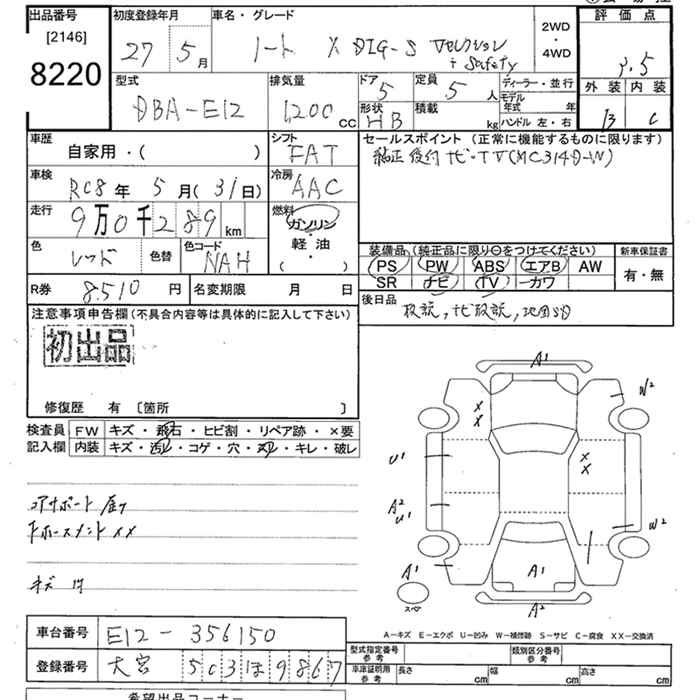 出品番号 初度登録年月 車名・グレード 評価点
[2146] 27 5月 ノート X DIG-S Vセレクション 2WD・4WD 3.5
8220 + Safety
型式 排気量 ドア 定員 ディーラー・並行 外装 内装
DBA-E12 1,200 CC 5 5人 モデル年式 年 B C
形状 HB 積載 kg ハンドル 左・右
車歴 シフト セールスポイント(正常に機能するものに限ります)
自家用・( ) FAT 純正後付ナビ・TV(MC314D-W)
車検 冷房
RC8年 5月(31日) AAC
走行 燃料
9万0千289km ガソリン・軽油
( )
色 レッド 色替 色コード NAH
装備品(純正品に限り○をつけてください) 新車保証書
PS PW ABS エアB AW 有・無
SR ナビ TV カワ
R券 8,510円 名変期限 月 日
後日品 取説, ナビ取説, 地図SD
注意事項申告欄(不具合内容等は具体的に記入して下さい)
初出品
修復歴 有 〔箇所 〕
検査員 FW キズ・飛石・ヒビ割・リペア跡・×要
記入欄 内装 キズ・汚レ・コゲ・穴・スレ・キレ・破レ
コアサポート
XX
キズ
A1
W2
X
X
U1
X
X
A2
U1
W2
A1
A1
スペア
A2
A-キズ E-エクボ U-凹み W-補修跡 S-サビ C-腐食 XX-交換済
車台番号 E12-356150
登録番号 大宮 503 ほ 9867
型式指定番号 参考 類別区分番号 参考
車庫証明用 参考 長さ cm 幅 cm 高さ cm
希望出品コーナー